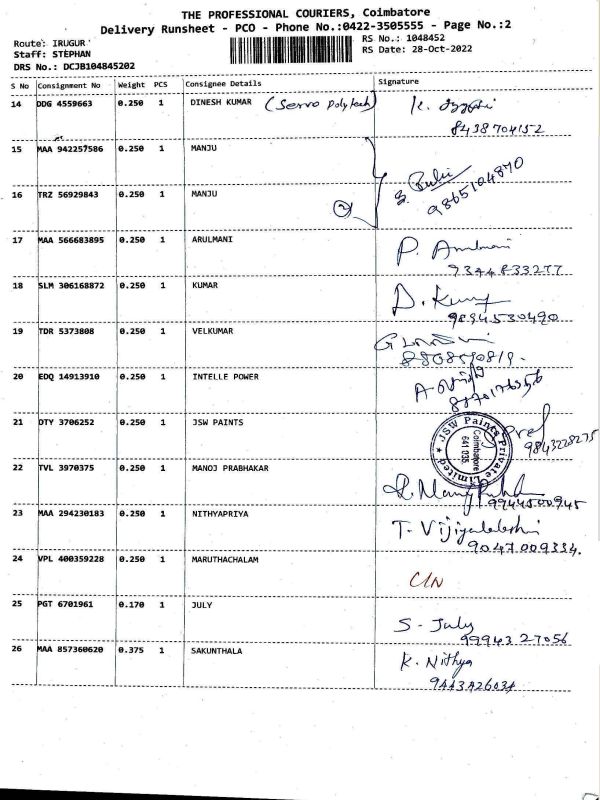 THE PROFESSIONAL COURIERS, Coimbatore
Delivery Runsheet - PCO - Phone No.:0422-3505555 - Page No.:2
Route: IRUGUR
RS No.: 1048452
Staff: STEPHAN
RS Date: 28-Oct-2022
DRS No.: DCJB104845202
S No Consignment No Weight PCS Consignee Details Signature
14 DDG 4559663 0.250 1 DINESH KUMAR (Servo Polytech)
8438704152
15 MAA 942257586 0.250 1 MANJU
9865104870
16 TRZ 56929843 0.250 1 MANJU
2
17 MAA 566683895 0.250 1 ARULMANI P.
9344833277
18 SLM 306168872 0.250 1 KUMAR D. Kumar
9894530490
19 TDR 5373808 0.250 1 VELKUMAR
20 EDQ 14913910 0.250 1 INTELLE POWER
21 DTY 3706252 0.250 1 JSW PAINTS
JSW Paints Private Limited
Coimbatore
641 035
9843228275
22 TVL 3970375 0.250 1 MANOJ PRABHAKAR
9944500945
23 MAA 294230183 0.250 1 NITHYAPRIYA T. Vijiyalakshmi
9047009334.
24 VPL 400359228 0.250 1 MARUTHACHALAM C/N
25 PGT 6701961 0.170 1 JULY S - July
9994327056
26 MAA 857360620 0.375 1 SAKUNTHALA K. Nithya
9443426034